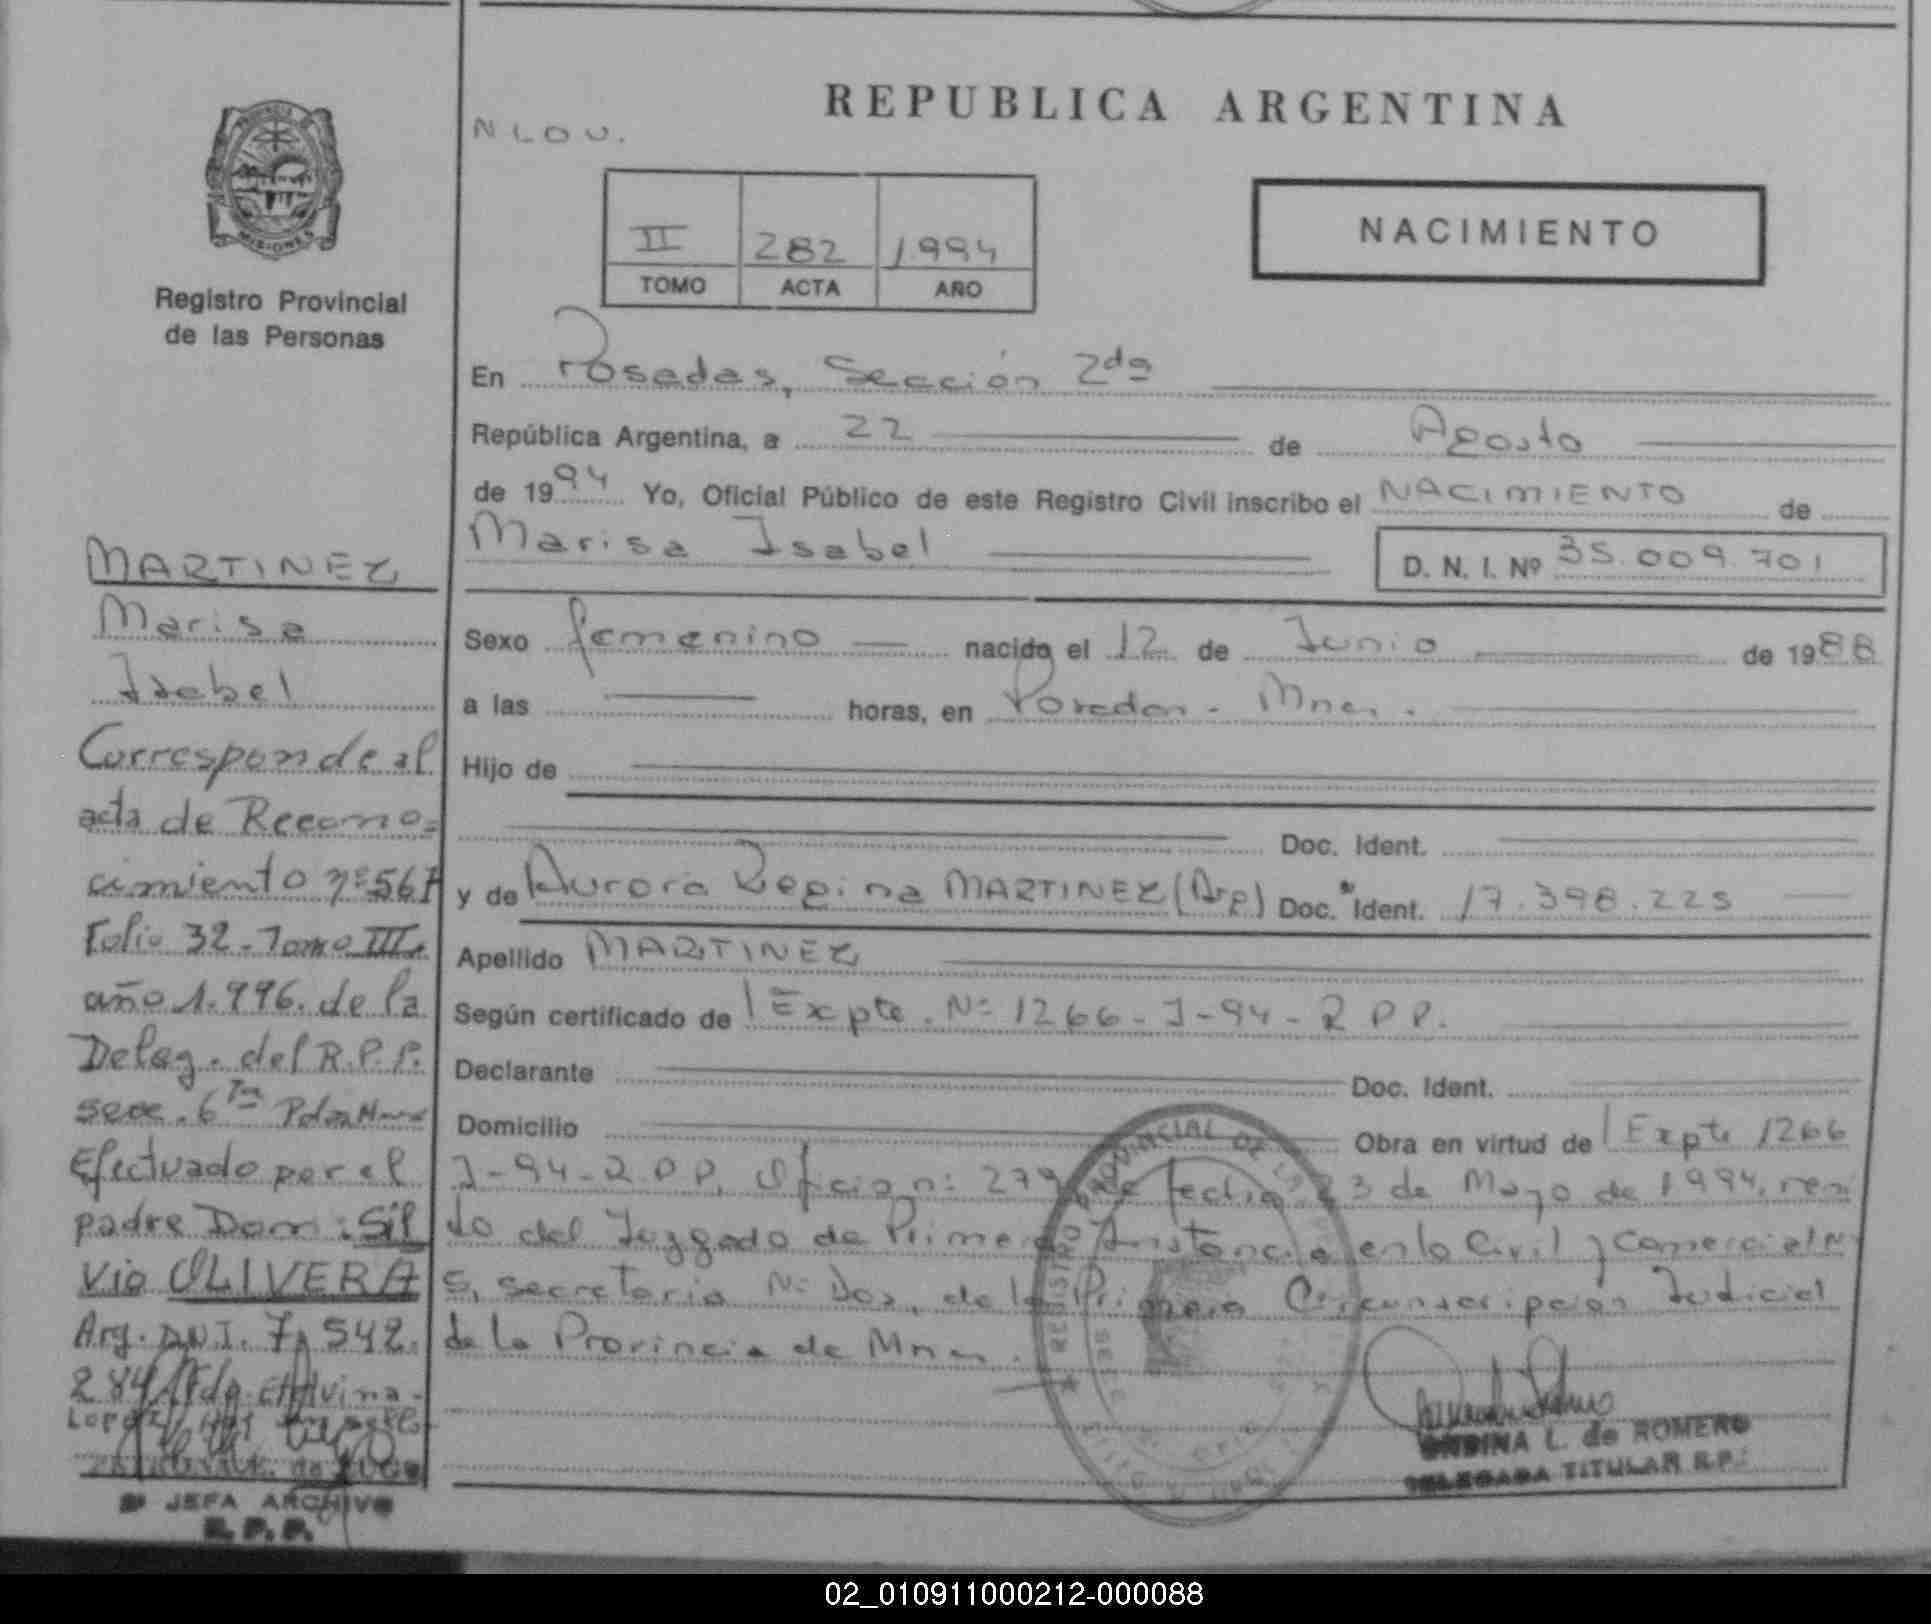 REPUBLICA ARGENTINA
PROVINCIA DE MISIONES
Registro Provincial
de las Personas
N L O U.
NACIMIENTO
II 282 1.994
TOMO ACTA AÑO
En Posadas, Sección 2da
República Argentina, a 22 de Agosto
de 1994 Yo, Oficial Público de este Registro Civil inscribo el NACIMIENTO de
Marisa Isabel D. N. I. Nº 35.009.701
Sexo femenino nacido el 12 de Junio de 1988
a las horas, en Posadas - Mnes.
Hijo de
Doc. Ident.
y de Aurora Regina MARTINEZ (Arg) Doc. Ident. 17.398.225
Apellido MARTINEZ
Según certificado de Expte. Nº 1266-J-94-R P P.
Declarante Doc. Ident.
Domicilio Obra en virtud de Expte 1266
J-94-R.P P. Oficio nº 279 de fecha 23 de Mayo de 1994,
del Juzgado de Primera Instancia en lo Civil y Comercial Nº
5, secretaria Nº Dos, de la Primera Circunscripción Judicial
de la Provincia de Mnes.
ONDINA L. de ROMERO
DELEGADA TITULAR R.P.
MARTINEZ
Marisa
Isabel
Corresponde al
acta de Recono=
cimiento nº 567
Folio 32-Tomo III
año 1.996. de la
Deleg. del R.P.P.
secc. 6ta Pdas Mnes
Efectuado por el
padre Dom: Sil
vio OLIVERA
Arg. D.N.I. 7.542.
284
JEFA ARCHIVO
R. P. P.
02_010911000212-000088